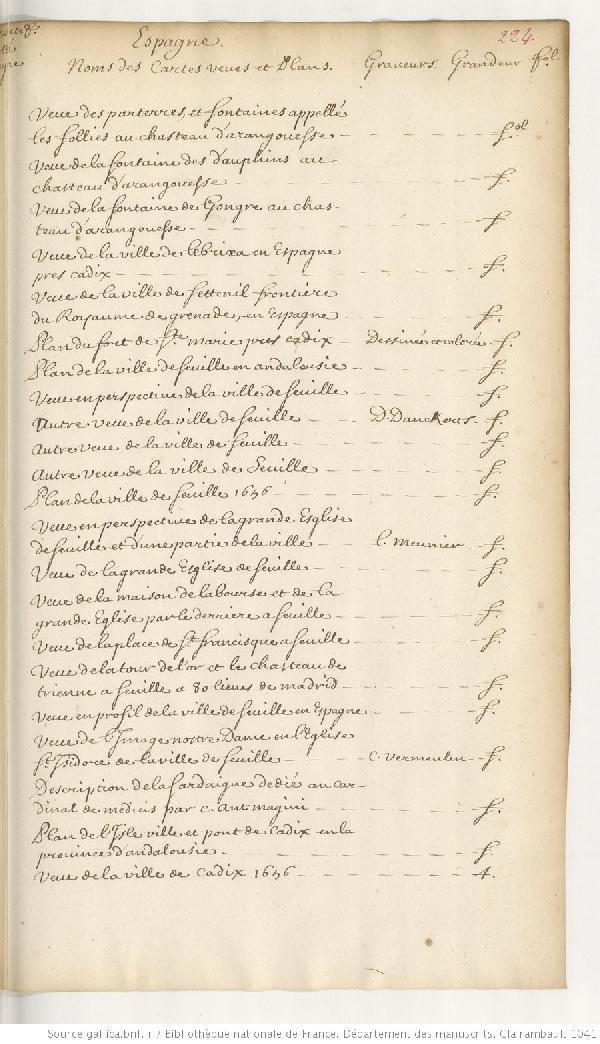 Espagne. 224.
Noms des Cartes veues et Plans. Graveurs Grandeur fol.
Veue des parterres, et fontaines appellé
les follies au chasteau d'arangouesse - f.ol
Veue de la fontaine des dauphins au
chasteau d'arangouesse - f.
Veue de la fontaine de Gongre au chas-
teau d'arangouesse - f.
Veue de la ville de lebrixa en Espagne
pres cadix - f.
Veue de la ville de settenil frontiere
du Royaume de grenade, en Espagne f.
Plan du fort de Ste marie pres cadix - Dessinée et colorée - f.
Plan de la ville de seuille en andalousie - f.
Veue en perspective de la ville de seuille - f.
Autre veue de la ville de seuille - D. Danckers - f.
Autre veue de la ville de seuille - f.
Autre veue de la ville de Seuille - f.
Plan de la ville de seuille 1646 - f.
Veue en perspective de la grande Esglise
de seuille et d'une partie de la ville - l. meunier - f.
Veue de la grande Esglise de seuille - f.
Veue de la maison de la bourse et de la
grande Eglise par le derriere a seuille - f.
Veue de la place de St francisque a seuille - f.
Veue de la tour de l'or et le chasteau de
trienne a seuille a 80 lieues de madrid - f.
Veue en profil de la ville de seuille en Espagne - f.
Veue de l'Image nostre Dame en l'Eglise
St Isidore de la ville de seuille - C. Vermeulen - f.
Description de la sardaigne dedié au car-
dinal de medicis par c. Ant. magini - f.
Plan de l'Isle ville et pont de Cadix en la
province d'andalousie - f.
Veue de la ville de Cadix 1646 - 4.
Source gallica.bnf.fr / Bibliothèque nationale de France. Département des manuscrits. Clairambault 1041